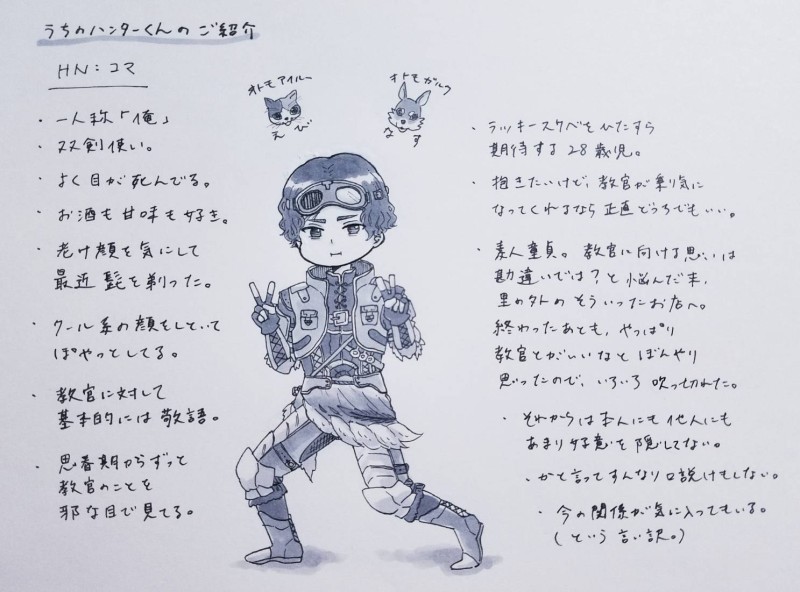 うちのハンターくんのご紹介
HN：コマ
・一人称「俺」
・双剣使い。
・よく目が死んでる。
・お酒も甘味も好き。
・老け顔を気にして
最近髭を剃った。
・クール系の顔をしていて
ぽやっとしてる。
・教官に対して
基本的には敬語。
・思春期からずっと
教官のことを
邪な目で見てる。
オトモアイルー
えび
オトモガルク
なす
・ラッキースケベをひたすら
期待する28歳児。
・抱きたいけど、教官が乗り気に
なってくれるなら正直どっちでもいい。
・素人童貞。教官に向ける思いは
勘違いでは？と悩んだ末、
里の外のそういったお店へ。
終わったあとも、やっぱり
教官とがいいなとぼんやり
思ったので、いろいろ吹っ切れた。
・それからは本人にも他人にも
あまり好意を隠してない。
・かと言ってすんなり口説けもしない。
・今の関係が気に入ってもいる。
（という言い訳。）